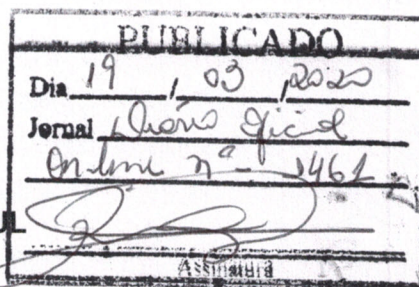 PUBLICADO
Dia 19 / 03 / 2020
Jornal Diário Oficial
On-line nº - 1461
Assinatura